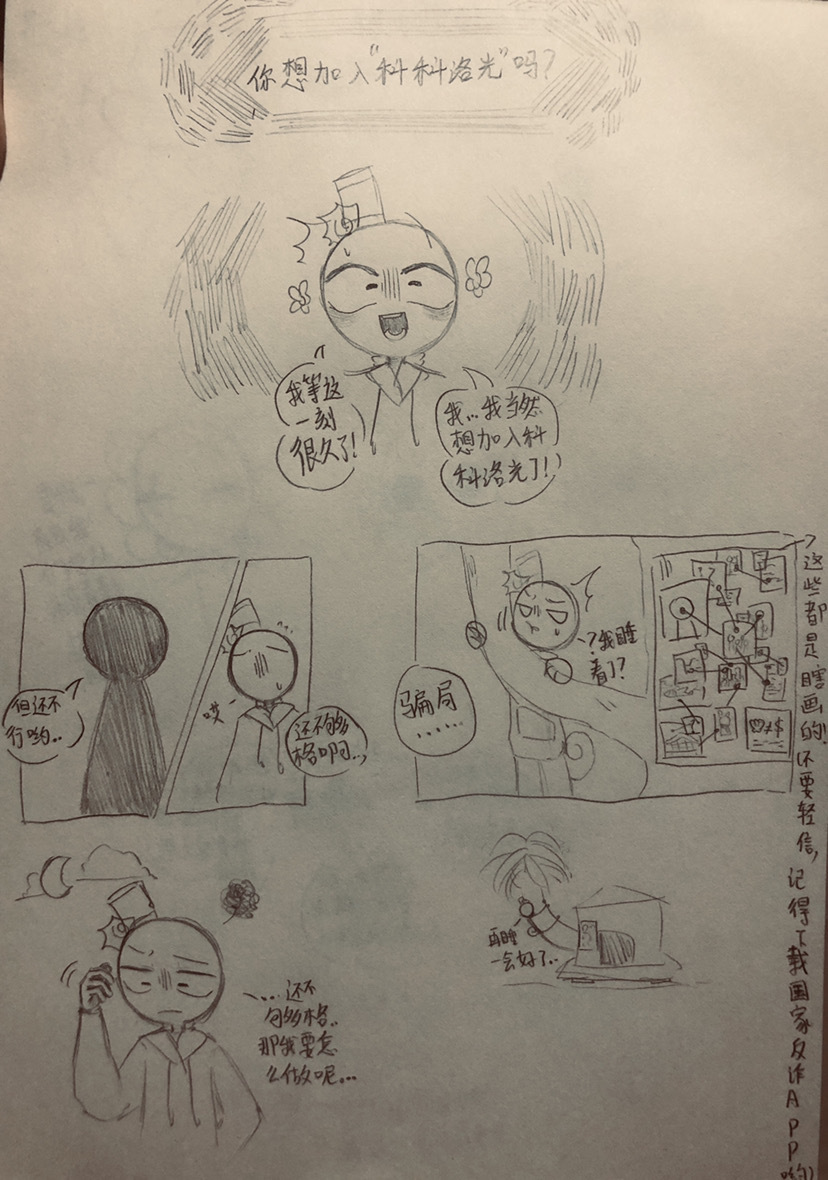 你想加入"科科洛光"吗?
我等这
一刻
很久了!
我...我当然
想加入科
科洛光了!
但还不
行哟..
哎
还不够
格啊...
骗局
......
?我睡
着了?
这些都是瞎画的!不要轻信,记得下载国家反诈APP哟!
...还不
够格..
那我要怎
么做呢...
再睡
一会好了..